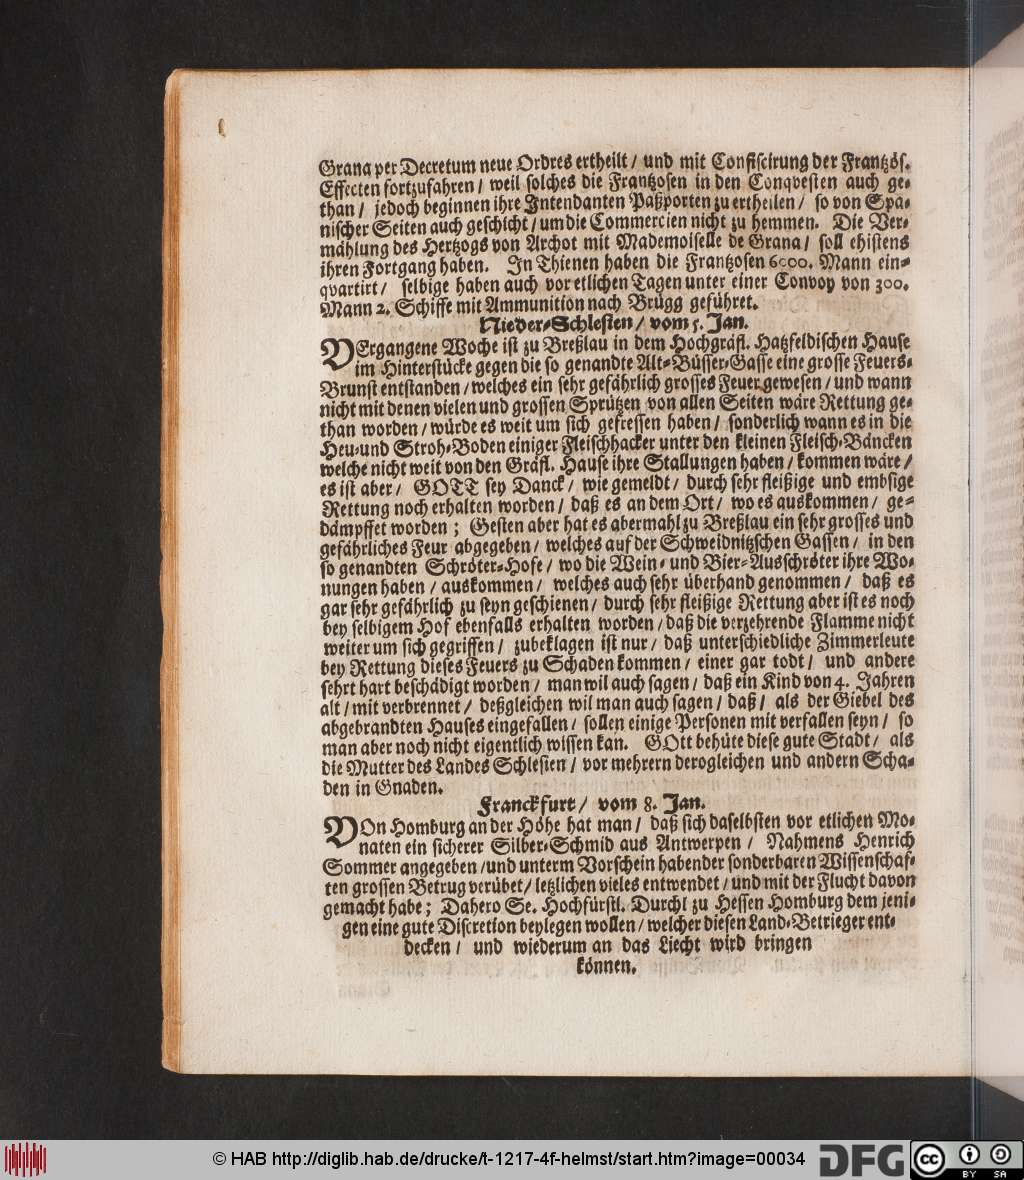 Grana per Decretum neue Ordres ertheilt / und mit Confiscirung der Frantzös.
Effecten fortzufahren / weil solches die Frantzosen in den Conqvesten auch ge-
than / jedoch beginnen ihre Intendanten Paßporten zu ertheilen / so von Spa-
nischer Seiten auch geschicht / um die Commercien nicht zu hemmen. Die Ver-
mählung des Hertzogs von Archot mit Mademoiselle de Grana / soll ehistens
ihren Fortgang haben. In Thienen haben die Frantzosen 6000. Mann ein-
qvartirt / selbige haben auch vor etlichen Tagen unter einer Convoy von 300.
Mann 2. Schiffe mit Ammunition nach Brügg geführet.
Nieder-Schlesien / vom 5. Jan.
VErgangene Woche ist zu Breßlau in dem Hochgräfl. Hatzfeldischen Hause
im Hinterstücke gegen die so genandte Alt-Büsser-Gasse eine grosse Feuers-
Brunst entstanden / welches ein sehr gefährlich grosses Feuer gewesen / und wann
nicht mit denen vielen und grossen Sprützen von allen Seiten wäre Rettung ge-
than worden / würde es weit um sich gefressen haben / sonderlich wann es in die
Heu-und Stroh-Boden einiger Fleischhacker unter den kleinen Fleisch-Bäncken
welche nicht weit von den Gräfl. Hause ihre Stallungen haben / kommen wäre /
es ist aber / GOTT sey Danck / wie gemeldt / durch sehr fleißige und embsige
Rettung noch erhalten worden / daß es an dem Ort / wo es auskommen / ge-
dämpffet worden ; Gesten aber hat es abermahl zu Breßlau ein sehr grosses und
gefährliches Feur abgegeben / welches auf der Schweidnitzschen Gassen / in den
so genandten Schröter-Hofe / wo die Wein- und Bier-Ausschröter ihre Wo-
nungen haben / auskommen / welches auch sehr überhand genommen / daß es
gar sehr gefährlich zu seyn geschienen / durch sehr fleißige Rettung aber ist es noch
bey selbigem Hof ebenfalls erhalten worden / daß die verzehrende Flamme nicht
weiter um sich gegriffen / zubeklagen ist nur / daß unterschiedliche Zimmerleute
bey Rettung dieses Feuers zu Schaden kommen / einer gar todt / und andere
sehrt hart beschädigt worden / man wil auch sagen / daß ein Kind von 4. Jahren
alt / mit verbrennet / deßgleichen wil man auch sagen / daß / als der Giebel des
abgebrandten Hauses eingefallen / sollen einige Personen mit verfallen seyn / so
man aber noch nicht eigentlich wissen kan. GOtt behüte diese gute Stadt / als
die Mutter des Landes Schlesien / vor mehrern derogleichen und andern Scha-
den in Gnaden.
Franckfurt / vom 8. Jan.
VOn Homburg an der Höhe hat man / daß sich daselbsten vor etlichen Mo-
naten ein sicherer Silber-Schmid aus Antwerpen / Nahmens Henrich
Sommer angegeben / und unterm Vorschein habender sonderbaren Wissenschaf-
ten grossen Betrug verübet / letzlichen vieles entwendet / und mit der Flucht davon
gemacht habe ; Dahero Se. Hochfürstl. Durchl zu Hessen Homburg dem jeni-
gen eine gute Discretion beylegen wollen / welcher diesen Land-Betrieger ent-
decken / und wiederum an das Liecht wird bringen
können.
© HAB http://diglib.hab.de/drucke/t-1217-4f-helmst/start.htm?image=00034
DFG
cc BY SA